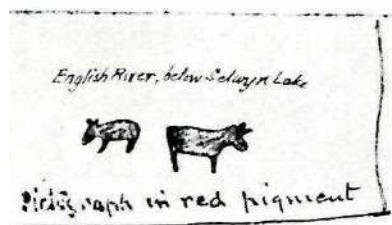 English River, below Selwyn Lake
Pictograph in red pigment